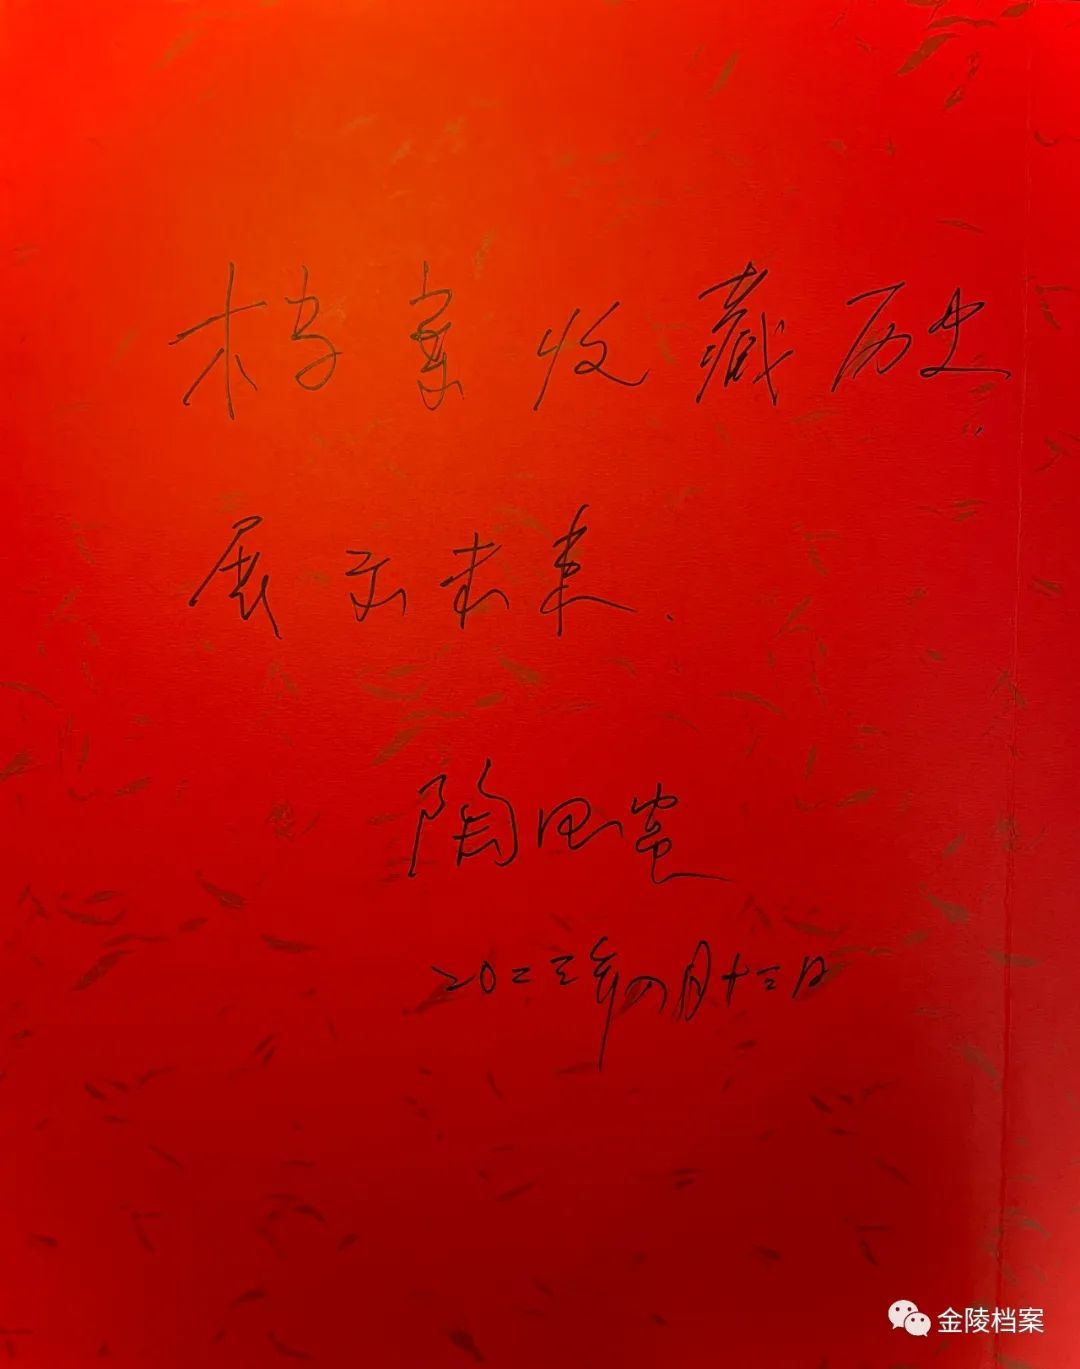 档案收藏历史，
展示未来.
陶思炎
二〇二三年四月十三日
金陵档案